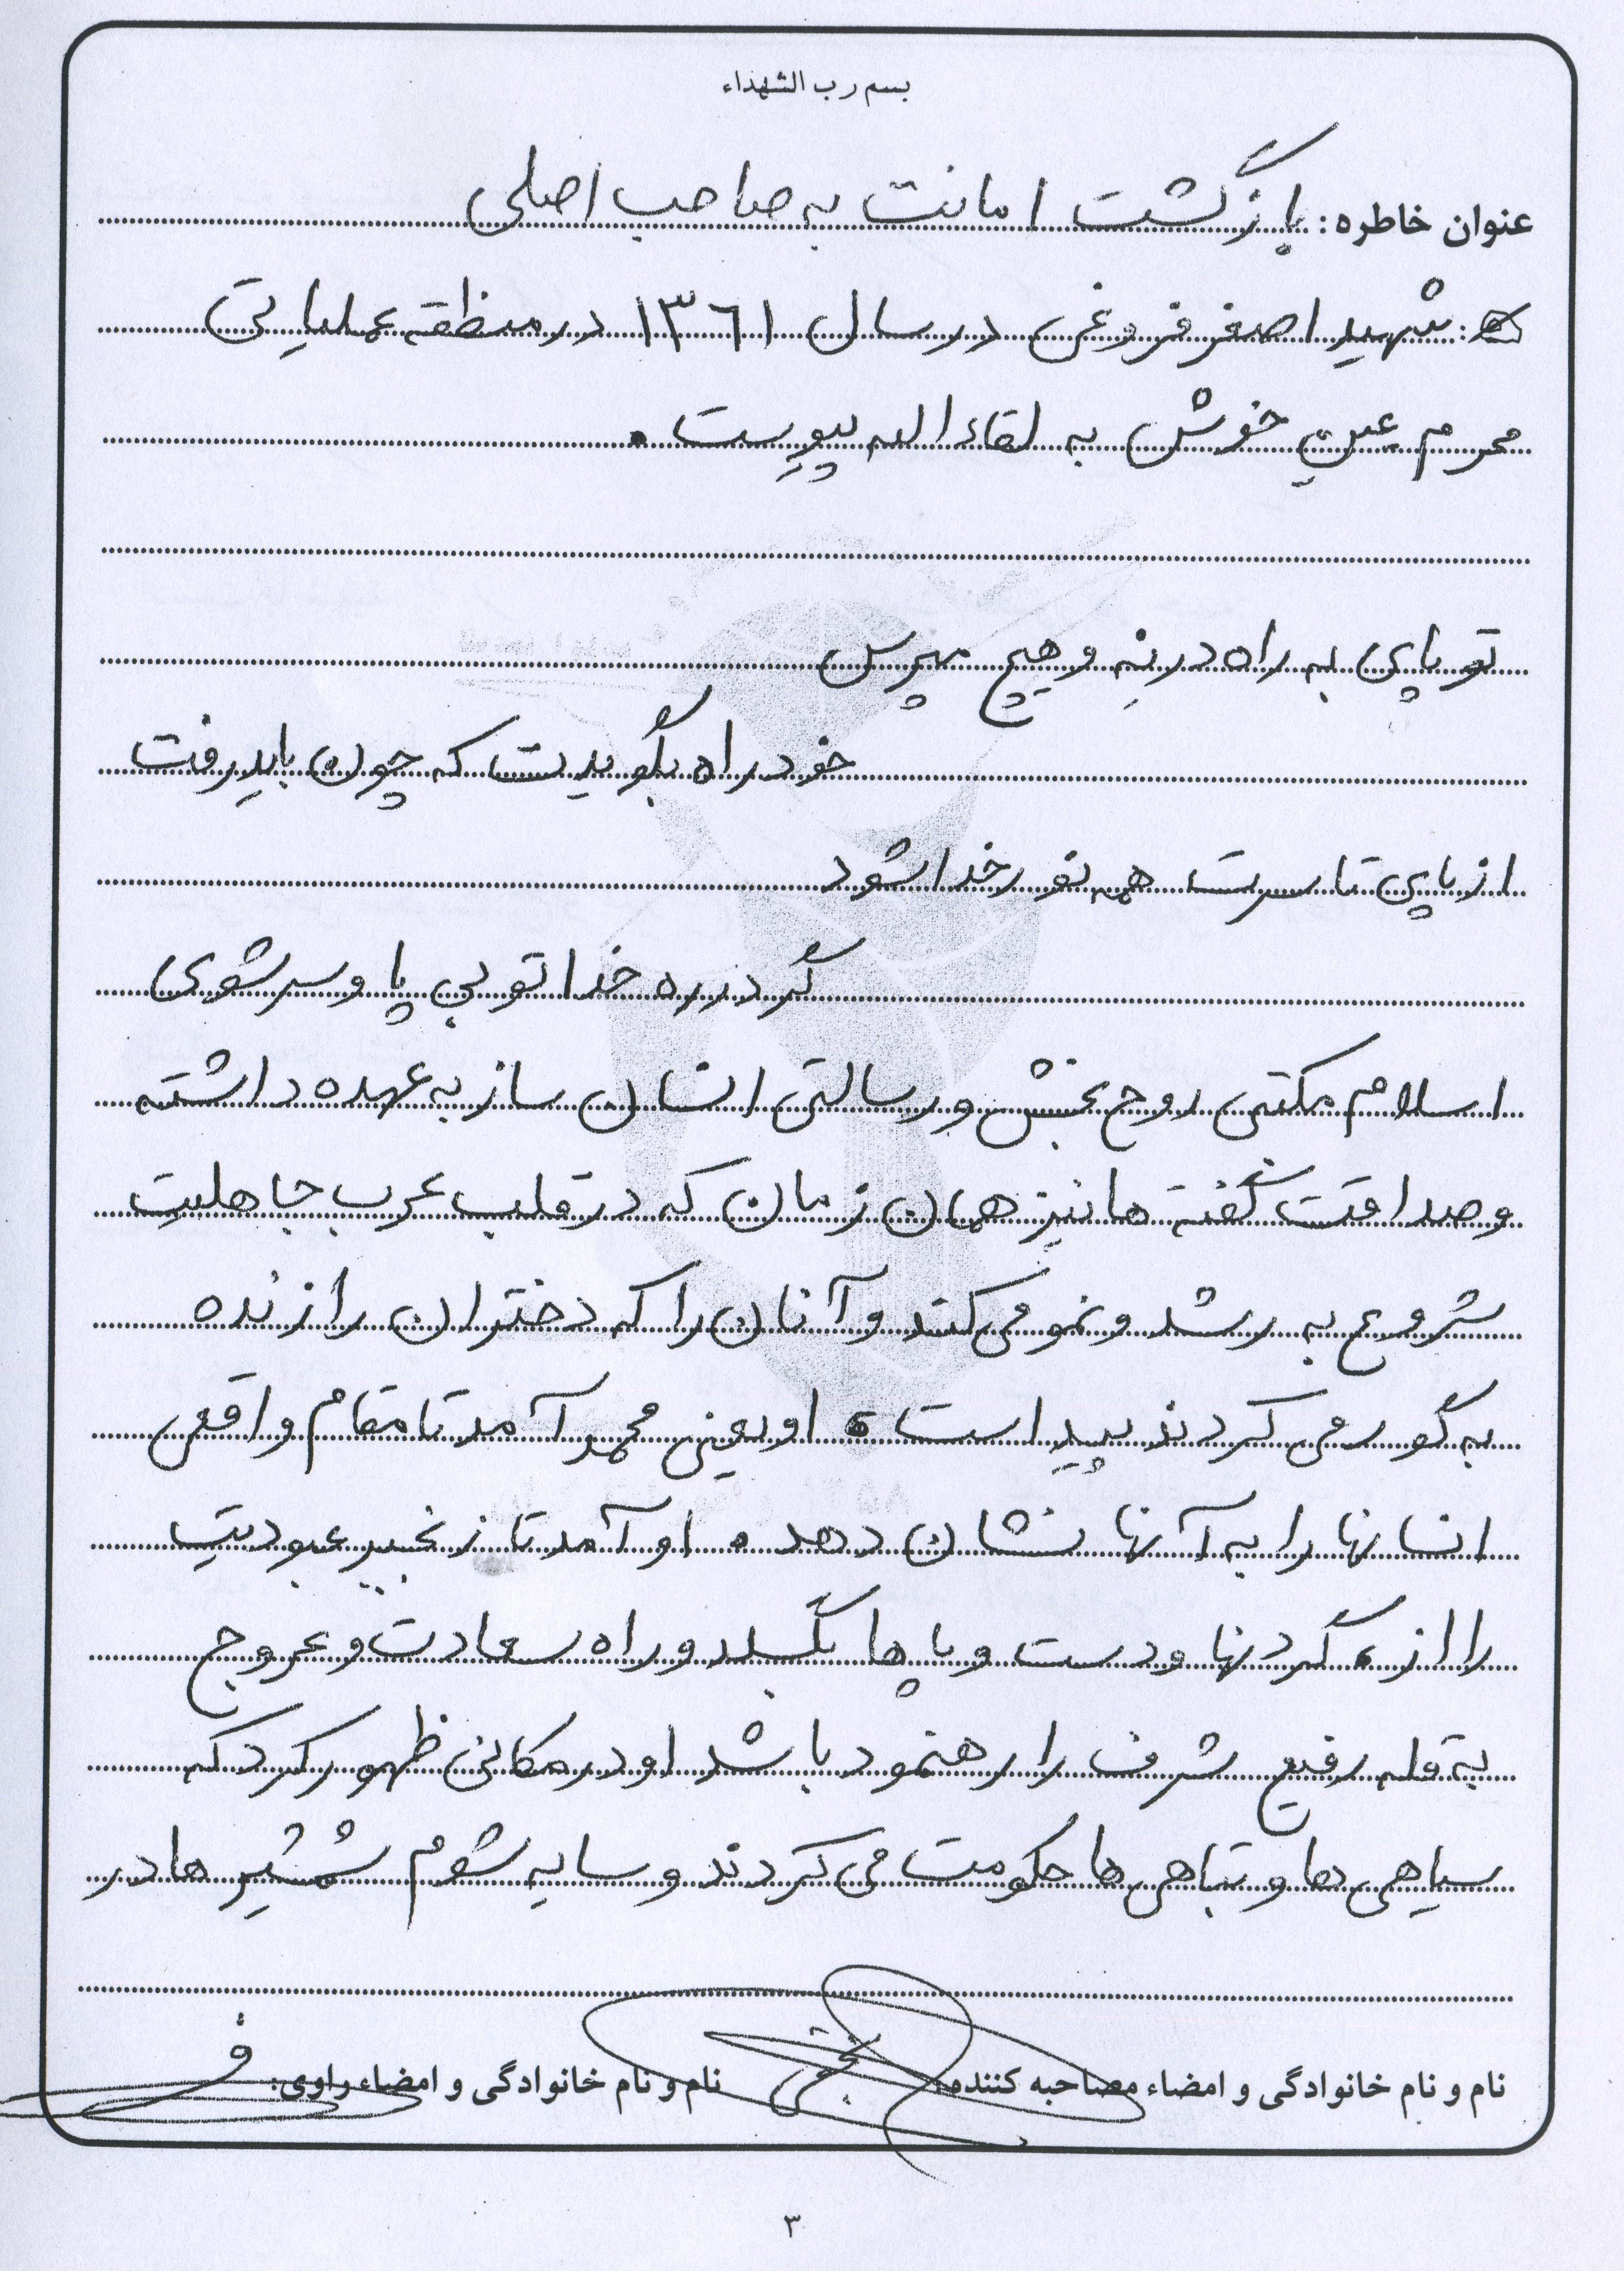 بسم رب الشهداء
عنوان خاطره: بازگشت امانت به صاحب اصلی
شهید اصغر فروغی در سال ۱۳۶۱ در منطقه عملیاتی
محرم عین خوش به لقاء الله پیوست.
تو پای به راه در نِه و هیچ مپرس
خود راه بگویدت که چون باید رفت
از پای تا سرت همه نور خدا شود
گر در ره خدا تو بی پا و سر شوی
اسلام مکتبی روح بخش و رسالتی انسان ساز به عهده داشته
و صداقت گفته ها نیز همان زمان که در قلب عرب جاهلیت
شروع به رشد و نمو می کند و آنان را که دختران را زنده
به گور می کردند پیداست. او یعنی محمد آمد تا مقام واقعی
انسانها را به آنها نشان دهد. او آمد تا زنجیر عبودیت
را از گردنها و دست و پاها بگسلد و راه سعادت و عروج
به قله رفیع شرف را رهنمود باشد او در مکانی ظهور کرد که
سیاهی ها و تباهی ها حکومت می کردند و سایه شوم شمشیر ها در
نام و نام خانوادگی و امضاء مصاحبه کننده: نام و نام خانوادگی و امضاء راوی:
۳